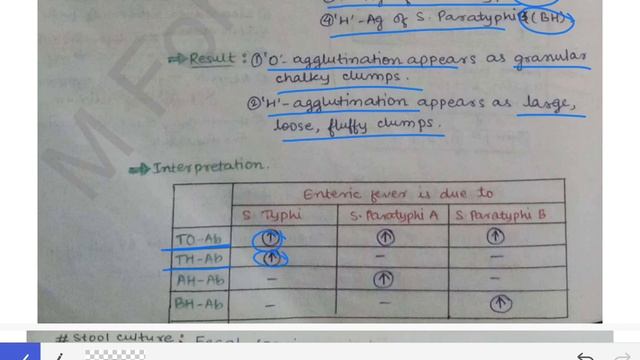 ④'H'-Ag of S. Paratyphi B (BH)
⇒ Result : ①'O'- agglutination appears as granular
chalky clumps.
②'H'-agglutination appears as large,
loose, fluffy clumps.
⇒ Interpretation.
Enteric fever is due to
S Typhi S. Paratyphi A S Paratyphi B
TO-Ab ↑ ↑ ↑
TH-Ab ↑ – –
AH-Ab – ↑ –
BH-Ab – – ↑
# Stool culture :
M For